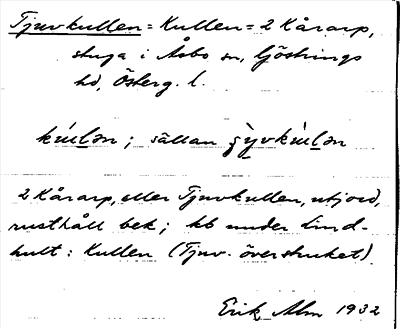 Tjuvkullen = Kullen = 2 Kårarp,
stuga i Åsbo sn, Göstrings
hd, Österg. l.
kúlən; sällan ʒyvkúlən
2 Kårarp, eller Tjuvkullen, utjord,
rusthåll bek; kb under Lind-
hult: Kullen (Tjuv. överstruket).
Erik Alm 1932